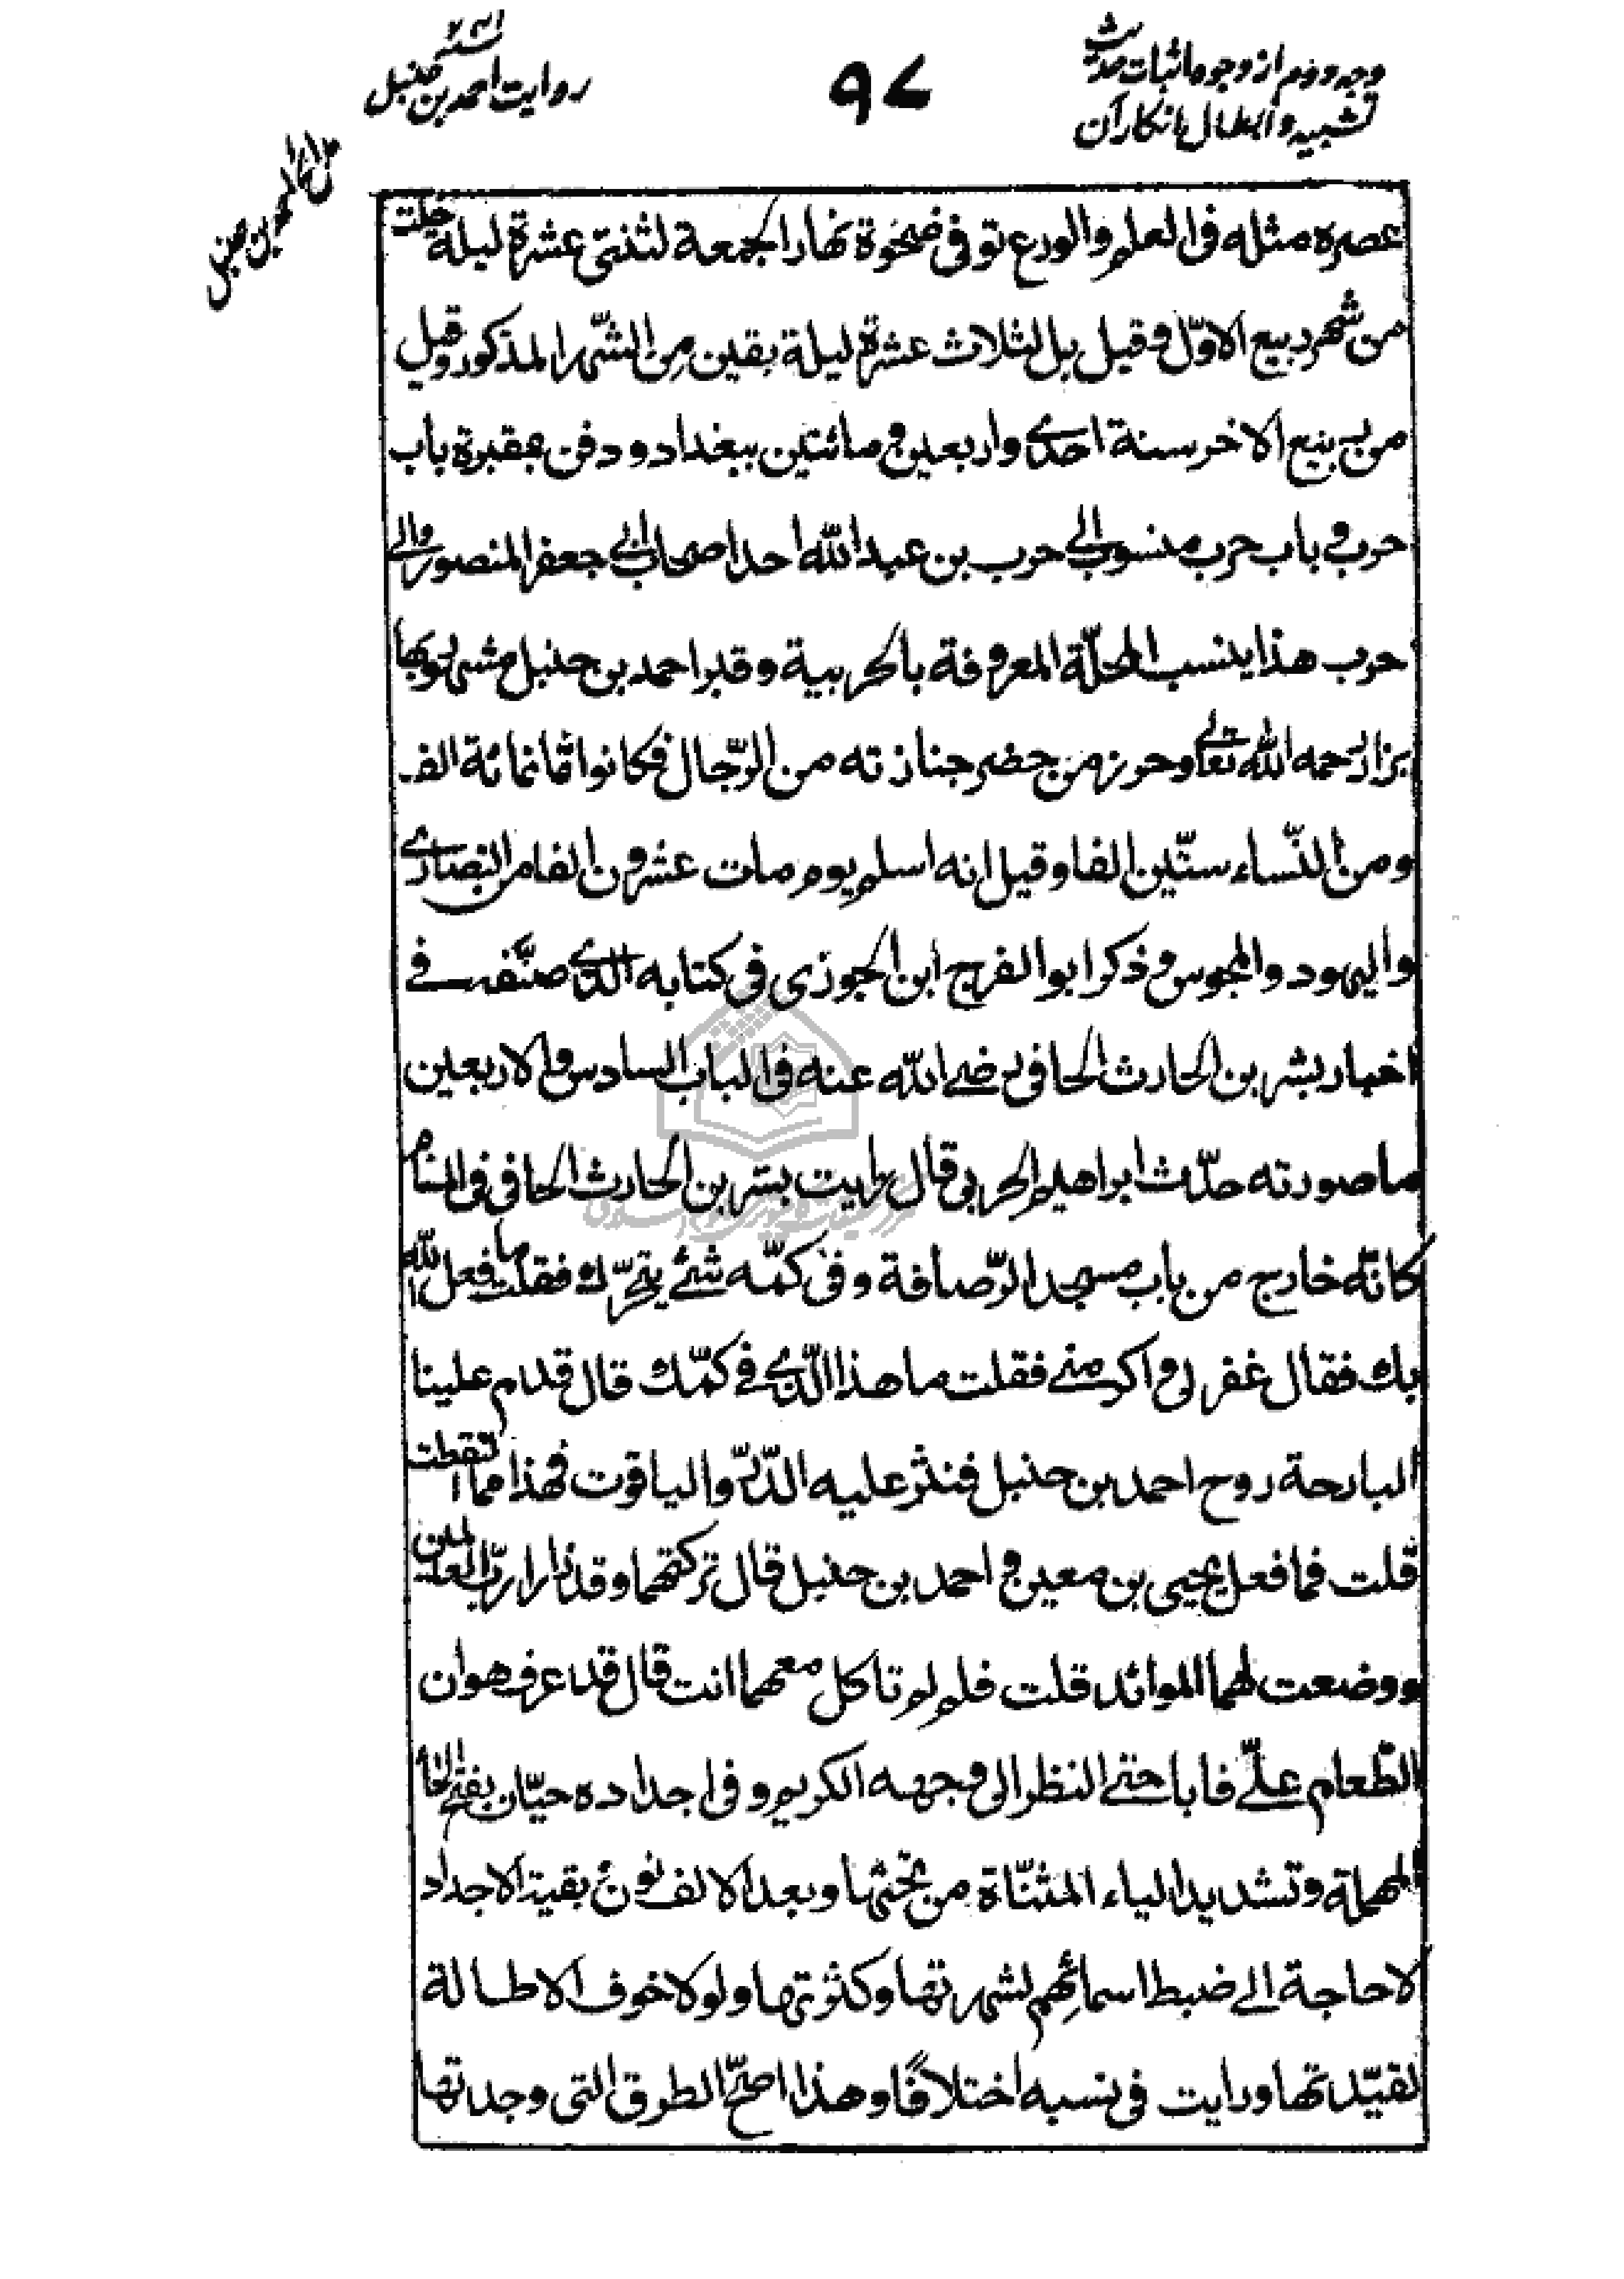 وجه دوم از وجوه اثبات حدیث
تشبیه و ابطال بانکار آن
۹۷
روایت احمد بن حنبل
سنة ۲۴۱
احمد بن حنبل
عصره مثله فی العلم والورع توفی ضحوة نهار الجمعة لثنتی عشرة لیلة خلت
من شهر ربیع الاوّل وقیل بل لثلاث عشرة لیلة بقین مِن الشّهر المذکور وقیل
من ربیع الاخر سنة احدی واربعین ومائتین ببغداد ودفن بمقبرة باب
حرب وباب حرب منسوب الی حرب بن عبد الله احد اصحاب ابی جعفر المنصور والی
حرب هذا ینسب المحلّة المعروفة بالحربیة وقبر احمد بن حنبل مشهور بها
یزار رحمه الله تعالی وحزر من حضر جنازته من الرّجال فکانوا ثمانمائة الف
ومن النّساء ستّین الفا وقیل انه اسلم یوم مات عشرون الفا من النصاری
والیهود والمجوس وذکر ابو الفرج ابن الجوزی فی کتابه الّذی صنّفه فی
اخبار بشر بن الحارث الحافی رضی الله عنه فی الباب السادس والاربعین
ما صورته حدّث ابراهیم الحربی قال رایت بشر بن الحارث الحافی فی المنام
کانّه خارج من باب مسجد الرّصافة وفی کمّه شئ یتحرّك فقلت ما فعل الله
بك فقال غفر لی واکرمنی فقلت ما هذا الّذی فی کمّك قال قدم علینا
البارحة روح احمد بن حنبل فنثر علیه الدّرّ والیاقوت فهذا مما التقطت
قلت فما فعل یحیی بن معین واحمد بن حنبل قال ترکتهما وقد زارا ربّ العالمین
ووضعت لهما الموائد قلت فلم لم تاکل معهما انت قال قد عرف هوان
الطّعام علیّ فاباحنی النظر الی وجهه الکریم وفی اجداده حیّان بفتح الحاء
المهملة وتشدید الیاء المثنّاة من تحتها وبعد الالف نون بقیة الاجداد
لا حاجة الی ضبط اسمائهم لشهرتها وکثرتها ولولا خوف الاطالة
لقیّدتها ورایت فی نسبه اختلافًا وهذا اصحّ الطرق التی وجدتها